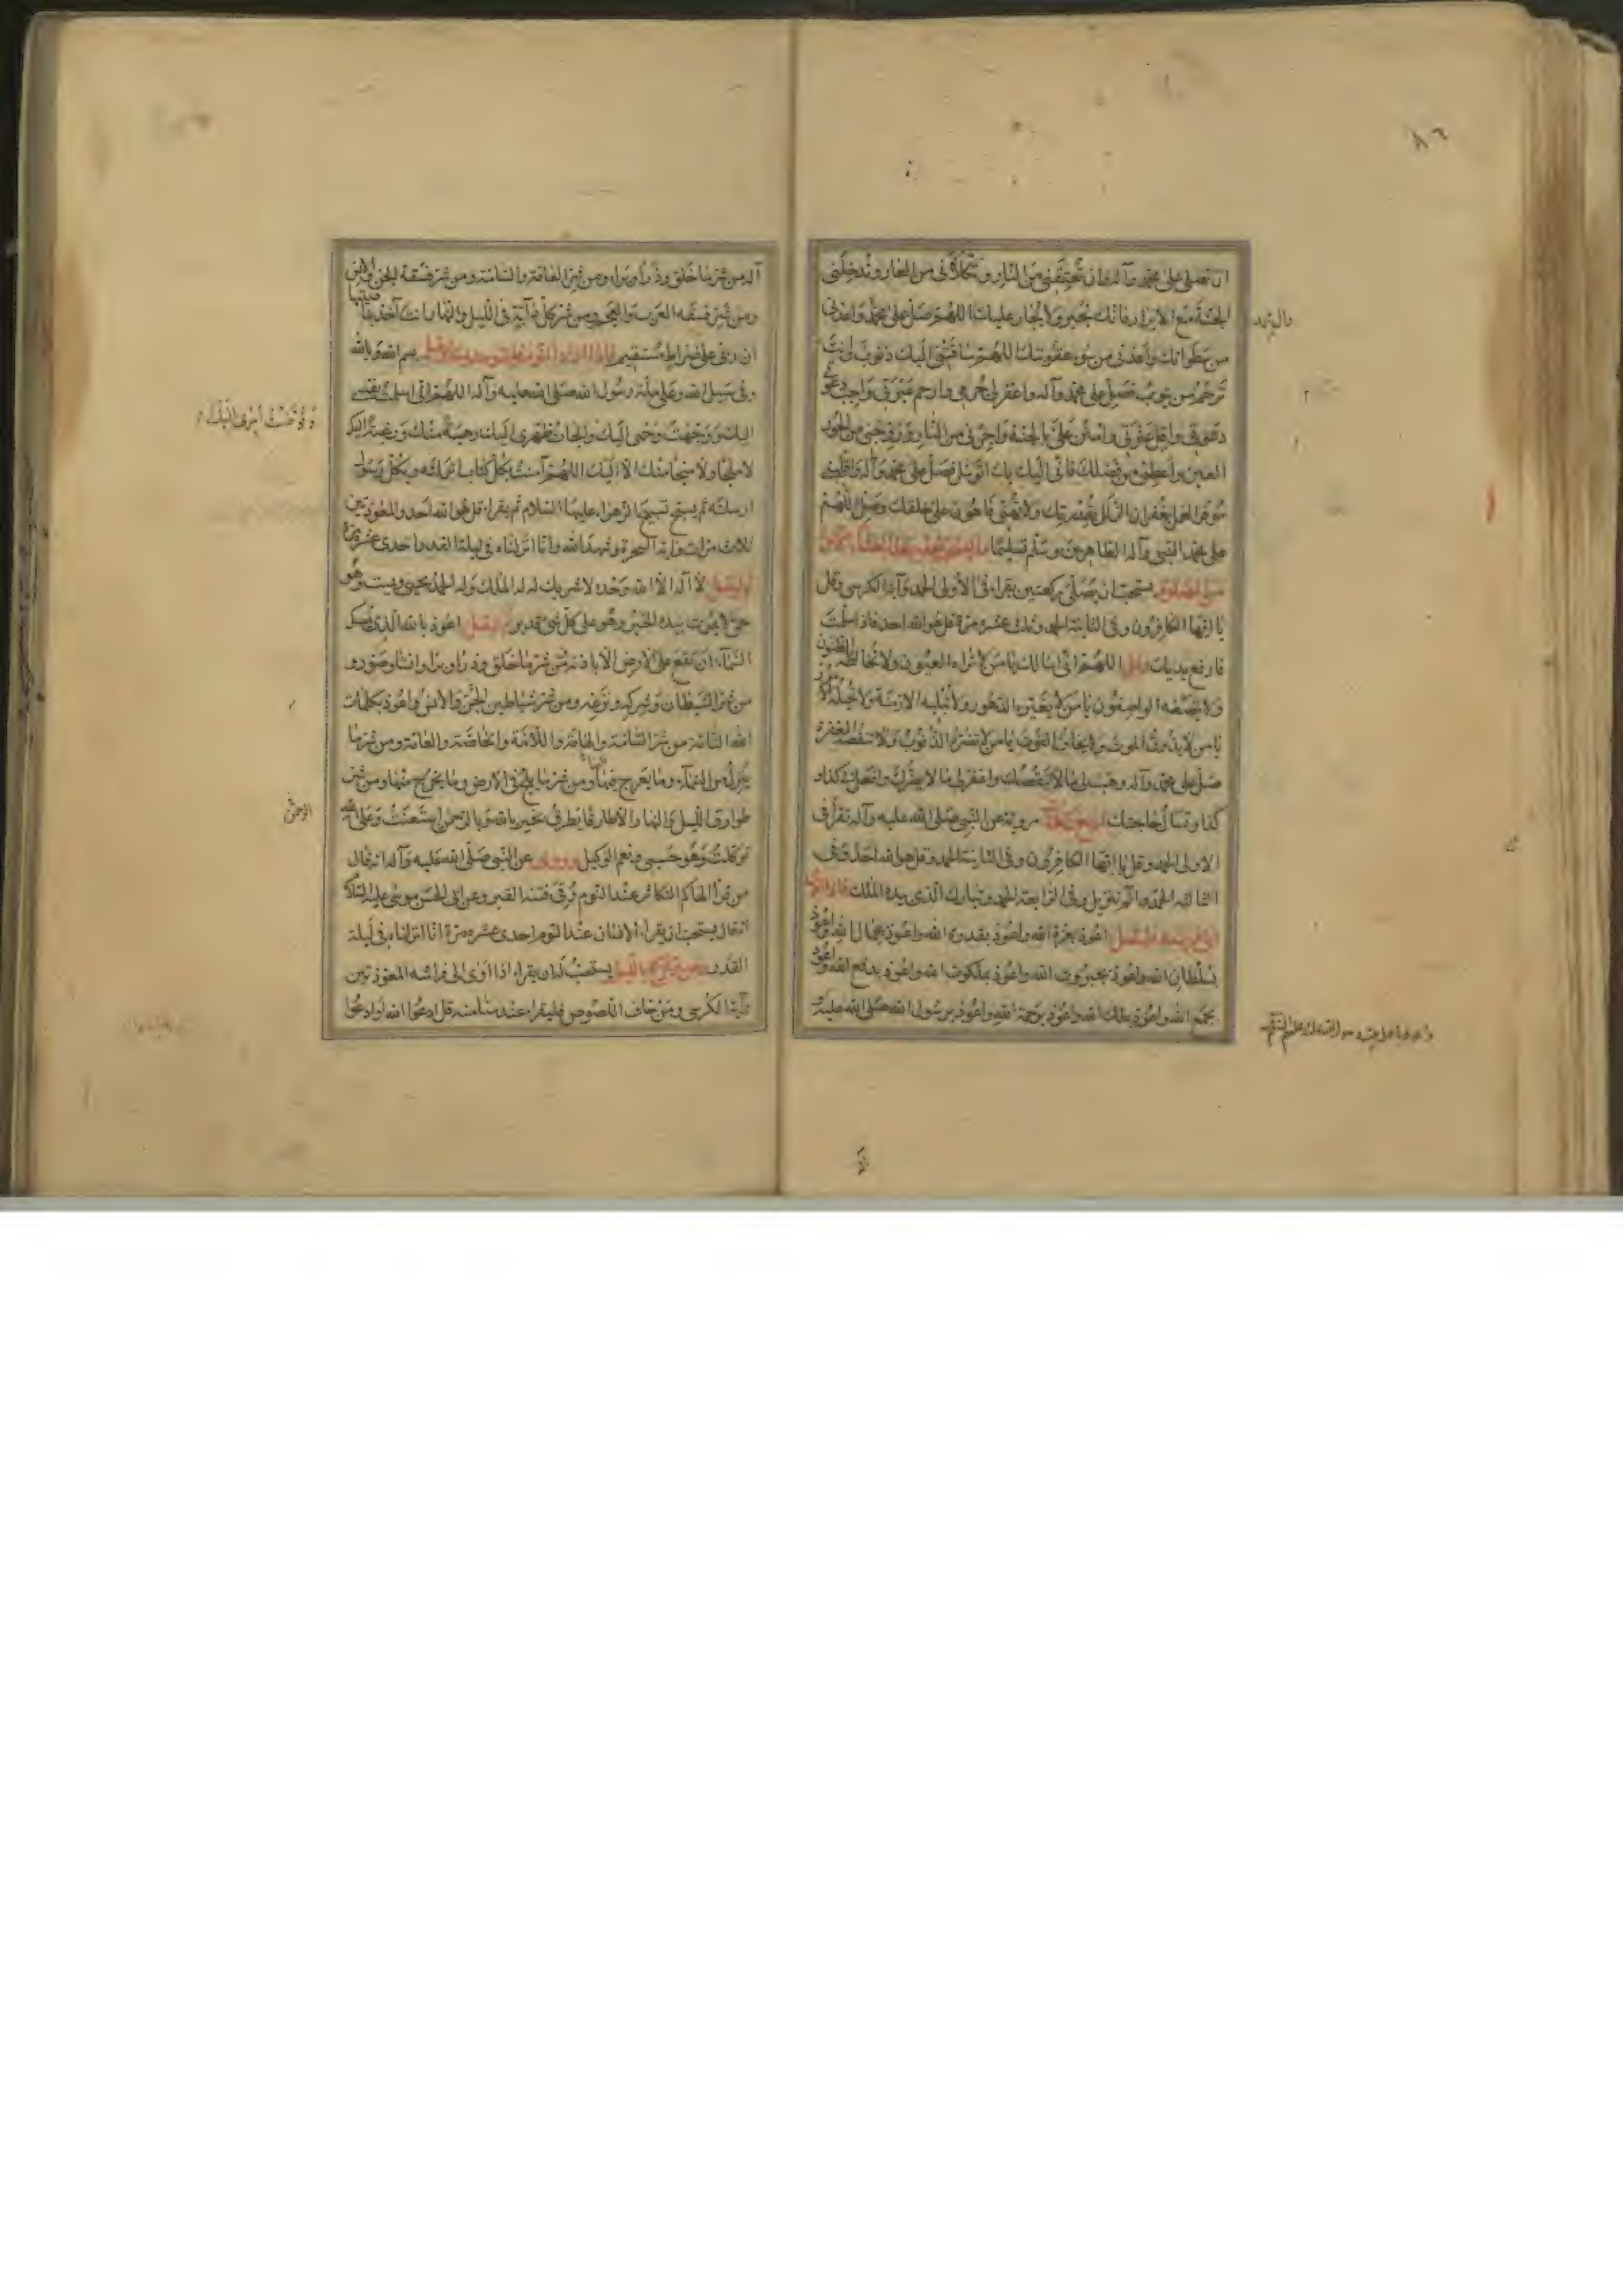 ٨٦
ان تصلى على محمد وآله وان تعتقنى من النار وتكلأنى من العار وتدخلنى
الجنة مع الابرار فانك تجير ولا يجار عليك اللهم صل على محمد واعذنى
من سطواتك واعذنى من سوء عقوبتك اللهم ساقتنى اليك ذنوب وانت
ترحم من يتوب فصل على محمد وآله واغفر لى جرمى وارحم عبرتى واجب
دعوتى واقل عثرتى وامنن على بالجنة واجرنى من النار وزوجنى من الحور
العين واعطنى من فضلك فانى اليك بك اتوسل فصل على محمد وآله واقلبنى
موفر العمل بغفران الزلل بقدرتك ولا تهنى فاهون على خلقك وصل اللهم
على محمد النبى وآله الطاهرين وسلم تسليما
يستحب ان يصلى ركعتين يقراء فى الاولى الحمد وآية الكرسى وقل
يا ايها الكافرون وفى الثانية الحمد وثلث عشره مرة قل هو الله احد فاذا سلمت
فارفع يديك وقل اللهم انى اسالك يا من لا تراه العيون ولا تخالطه الظنون
ولا يصفه الواصفون يا من لا تغيره الدهور ولا تبليه الازمنة ولا تحيله الامور
يا من لا يذوق الموت ولا يخاف الفوت يا من لا تضره الذنوب ولا تنقصه المغفرة
صل على محمد وآله وهب لى ما لا ينقصك واغفر لى ما لا يضرك وافعل بى كذا و
كذا وتسال حاجتك اربع ركعات مروية عن النبى صلى الله عليه وآله تقرأ فى
الاولى الحمد وقل يا ايها الكافرون وفى الثانية الحمد وقل هو الله احد وفى
الثالثة الحمد والم تنزيل وفى الرابعة الحمد وتبارك الذى بيده الملك
اعوذ بعزة الله واعوذ بقدرة الله واعوذ بجمال الله واعوذ
بسلطان الله واعوذ بجبروت الله واعوذ بملكوت الله واعوذ بدفع الله واعوذ
بجمع الله واعوذ بملك الله واعوذ برحمة الله واعوذ برسول الله صلى الله عليه
آله من شر ما خلق وذرأ وبرا ومن شر العامة والسامة ومن شر فسقة الجن والانس
ومن شر فسقة العرب والعجم ومن شر كل دابة فى الليل والنهار انت آخذ بناصيتها
ان ربى على صراط مستقيم بسم الله وبالله
وفى سبيل الله وعلى ملة رسول الله صلى الله عليه وآله اللهم انى اسلمت نفسى
اليك ووجهت وجهى اليك والجأت ظهرى اليك رهبة منك ورغبة اليك
وفوضت امرى اليك
لا ملجأ ولا منجا منك الا اليك اللهم آمنت بكل كتاب انزلته وبكل رسول
ارسلته ثم يسبح تسبيح الزهراء عليها السلام ثم يقراء قل هو الله احد والمعوذتين
ثلاث مرات وآية السخرة وشهد الله وانا انزلناه فى ليلة القدر احدى عشرة مرة
وليقل لا اله الا الله وحده لا شريك له له الملك وله الحمد يحيى ويميت وهو
حى لا يموت بيده الخير وهو على كل شئ قدير ثم ليقل اعوذ بالله الذى يمسك
السماء ان تقع على الارض الا باذنه من شر ما خلق وذرأ وبرا وانشا وصور و
من شر الشيطان وشركه ونزغه ومن شر شياطين الجن والانس واعوذ بكلمات
الله التامة من شر السامة والهامة واللامة والخاصة والعامة ومن شر ما
ينزل من السماء وما يعرج فيها ومن شر ما يلج فى الارض وما يخرج منها ومن شر
طوارق الليل والنهار الا طارقا يطرق بخير بالله وبالرحمن استعنت وعلى الله
توكلت وهو حسبى ونعم الوكيل وروى عن النبى صلى الله عليه وآله انه قال
من قرأ الهاكم التكاثر عند النوم وقى فتنة القبر وعن ابى الحسن موسى عليه السلام
انه قال يستحب ان يقراء الانسان عند النوم احدى عشره مرة انا انزلناه فى ليلة
القدر يستحب له ان يقراء اذا اوى الى فراشه المعوذتين
وآية الكرسى ومن خاف اللصوص فليقراء عند منامه قل ادعوا الله او ادعوا
الرحمن